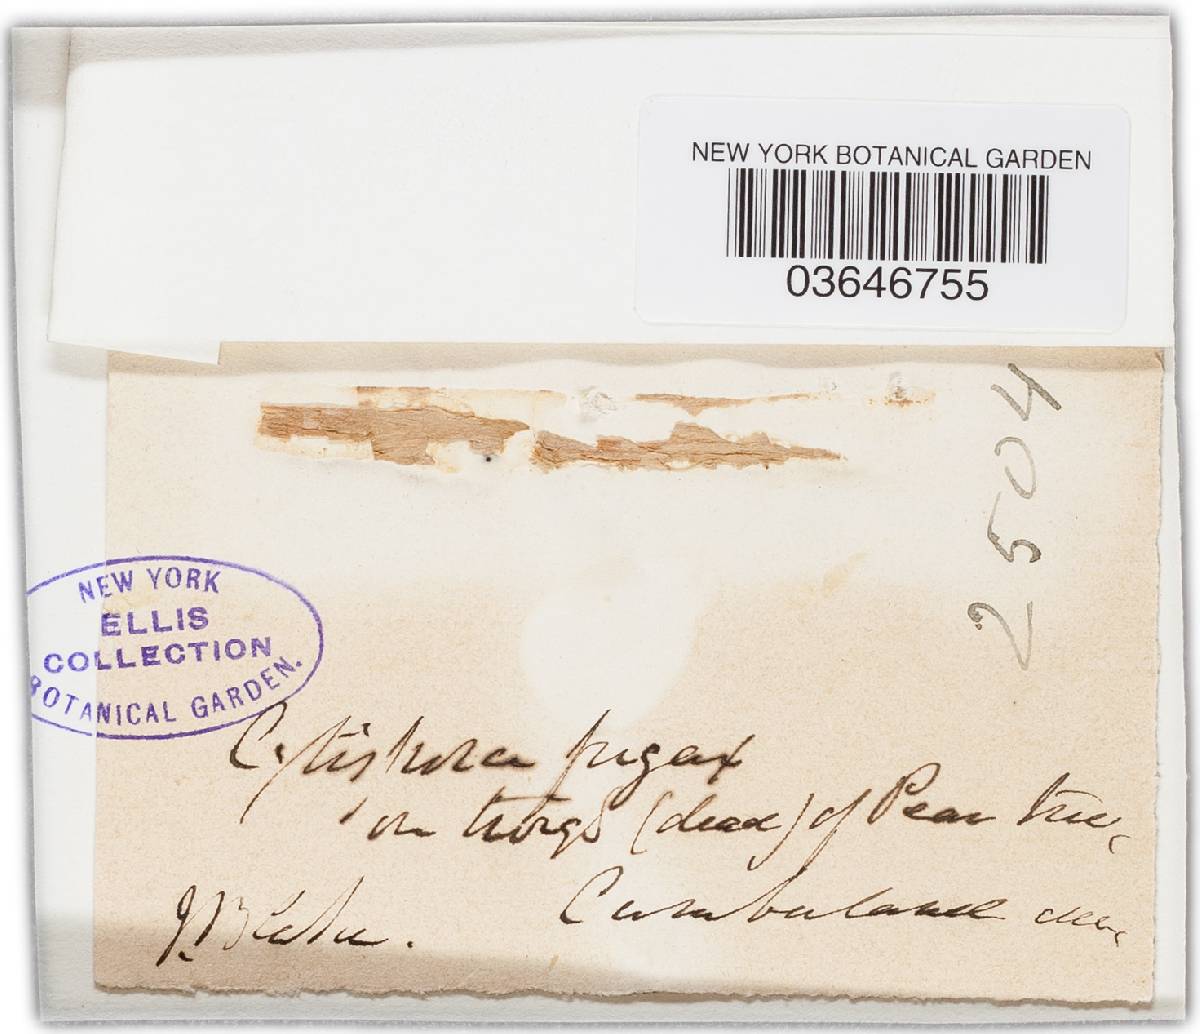 NEW YORK BOTANICAL GARDEN
03646755
2504
NEW YORK
ELLIS
COLLECTION
BOTANICAL GARDEN.
fugax
on twigs (dead) of Pear tree,
Cumberland